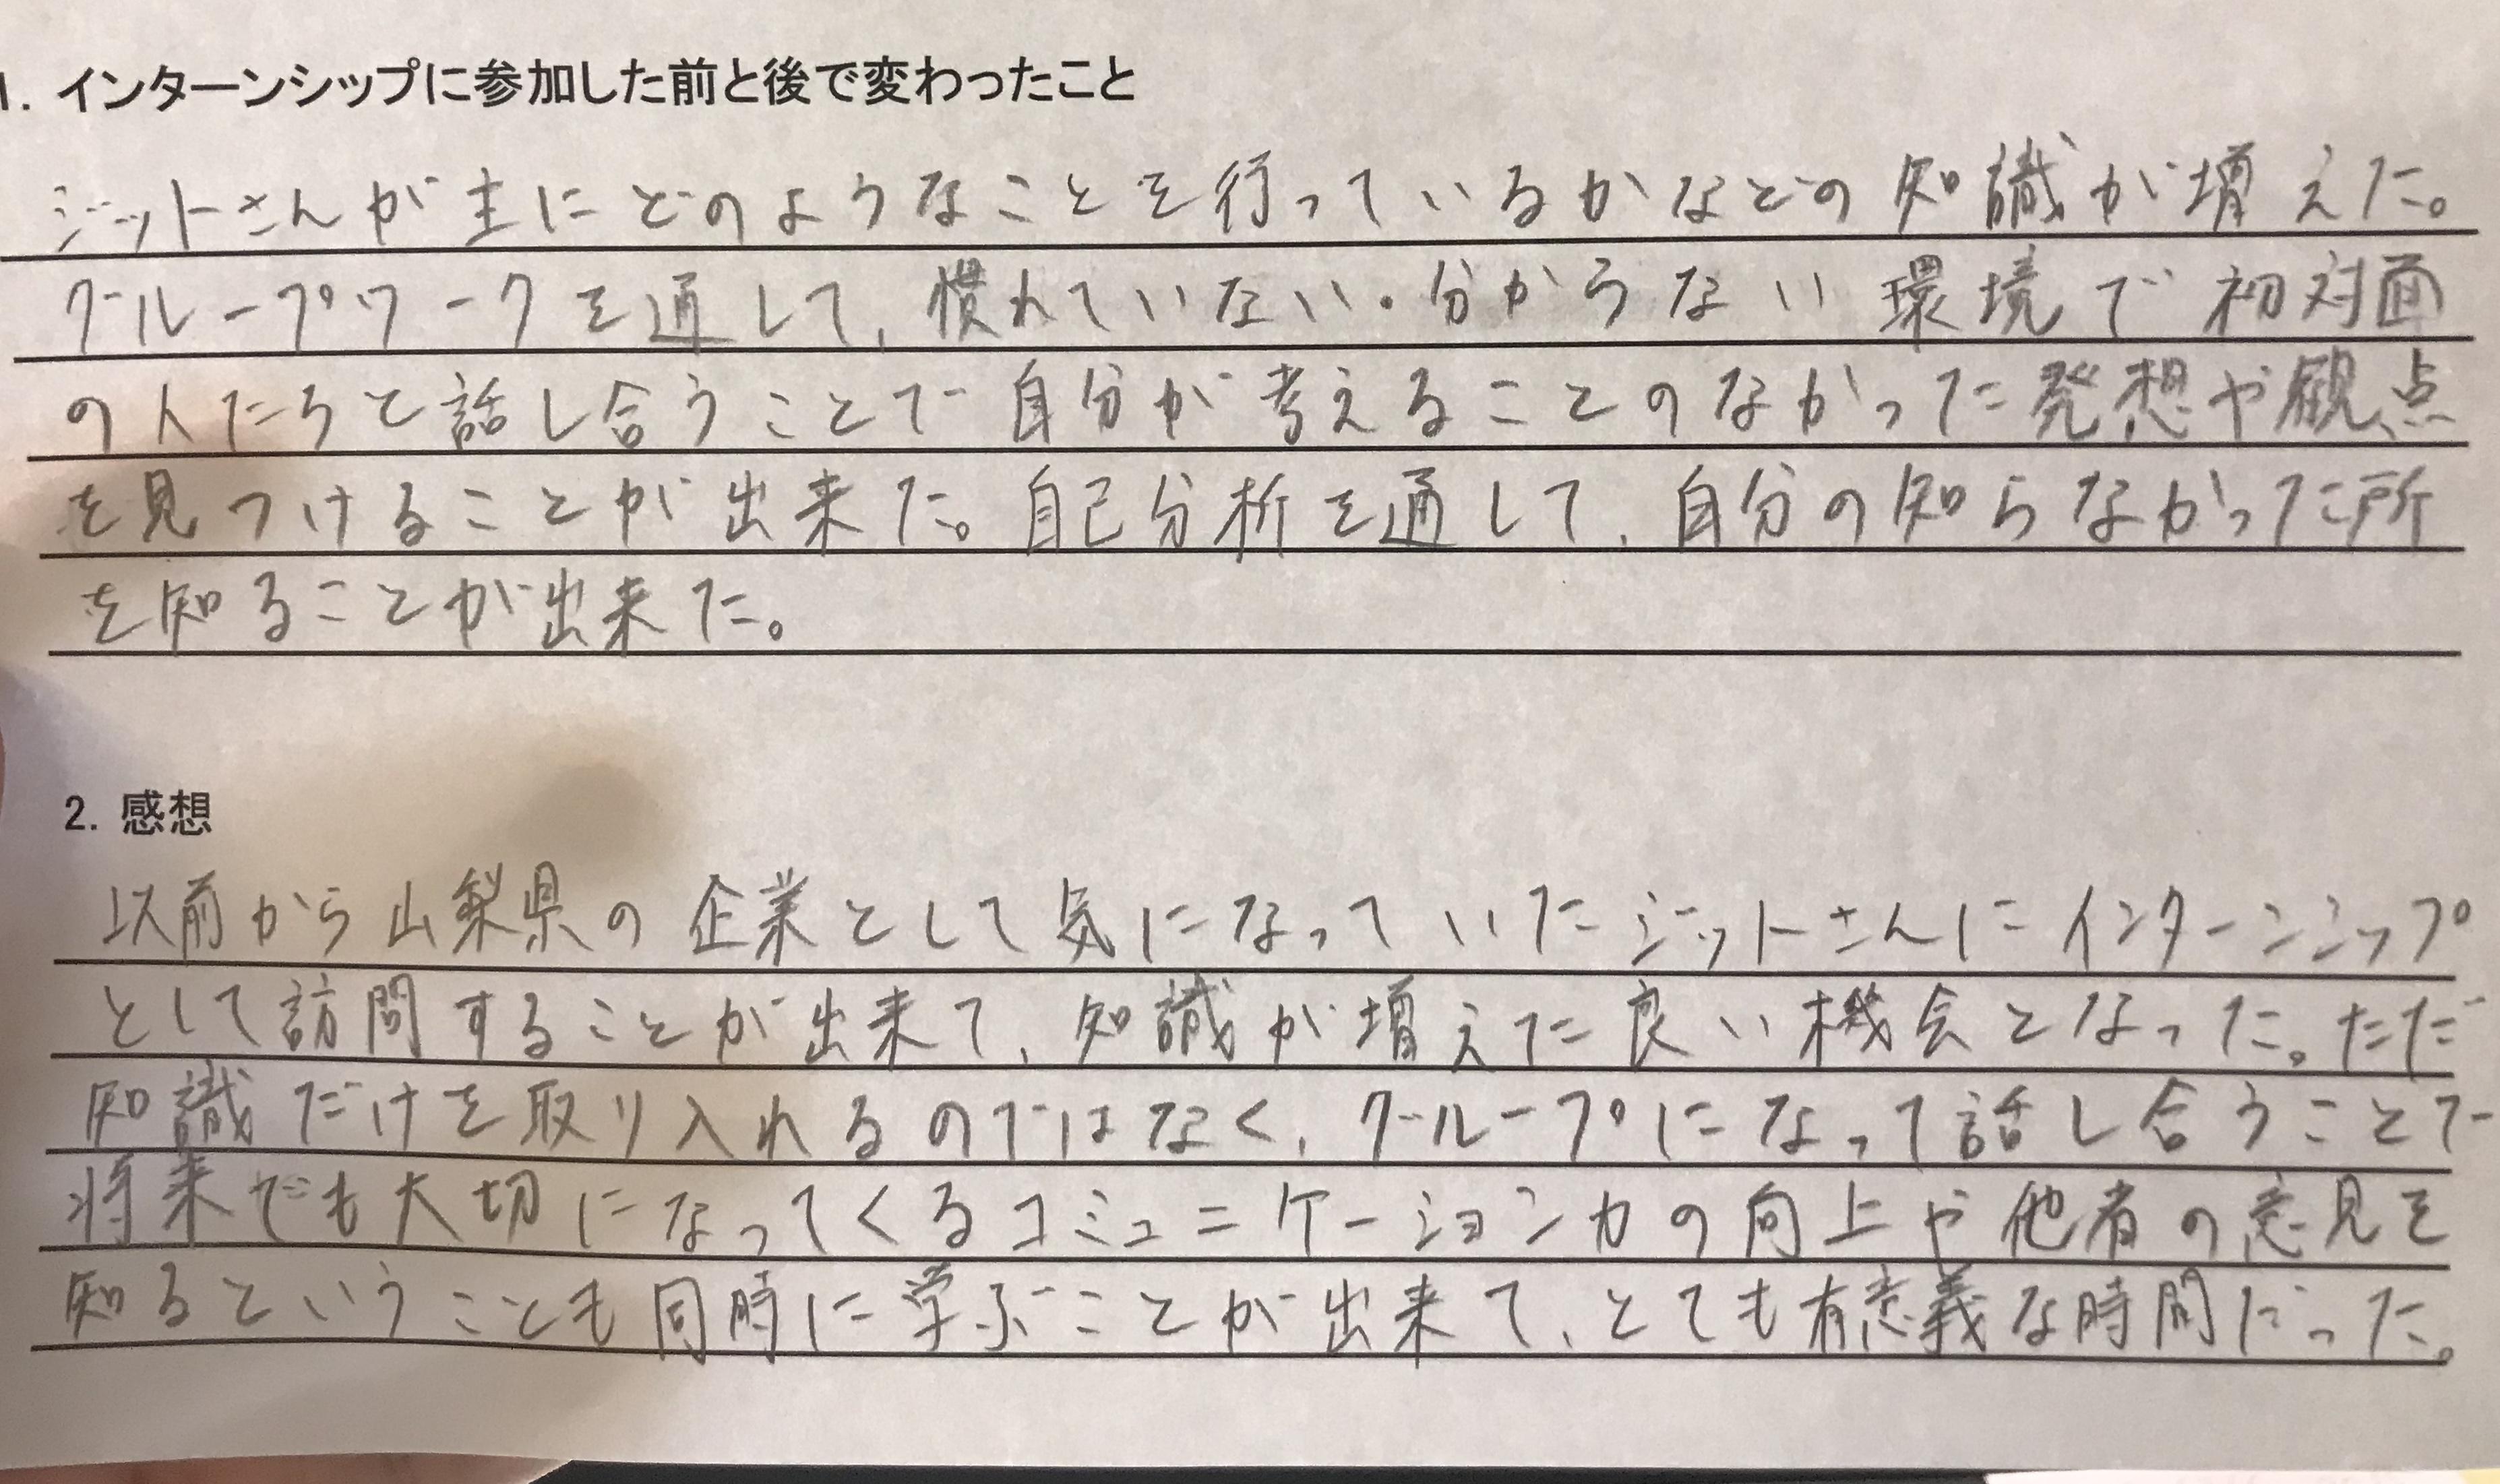 1. インターンシップに参加した前と後で変わったこと
ジットさんが主にどのようなことを行っているかなどの知識が増えた。
グループワークを通して、慣れていない・分からない環境で初対面
の人たちと話し合うことで自分が考えることのなかった発想や観点
を見つけることが出来た。自己分析を通して、自分の知らなかった所
を知ることが出来た。
2. 感想
以前から山梨県の企業として気になっていたジットさんにインターンシップ
として訪問することが出来て、知識が増えた良い機会となった。ただ
知識だけを取り入れるのではなく、グループになって話し合うことで
将来でも大切になってくるコミュニケーション力の向上や他者の意見を
知るということも同時に学ぶことが出来て、とても有意義な時間だった。